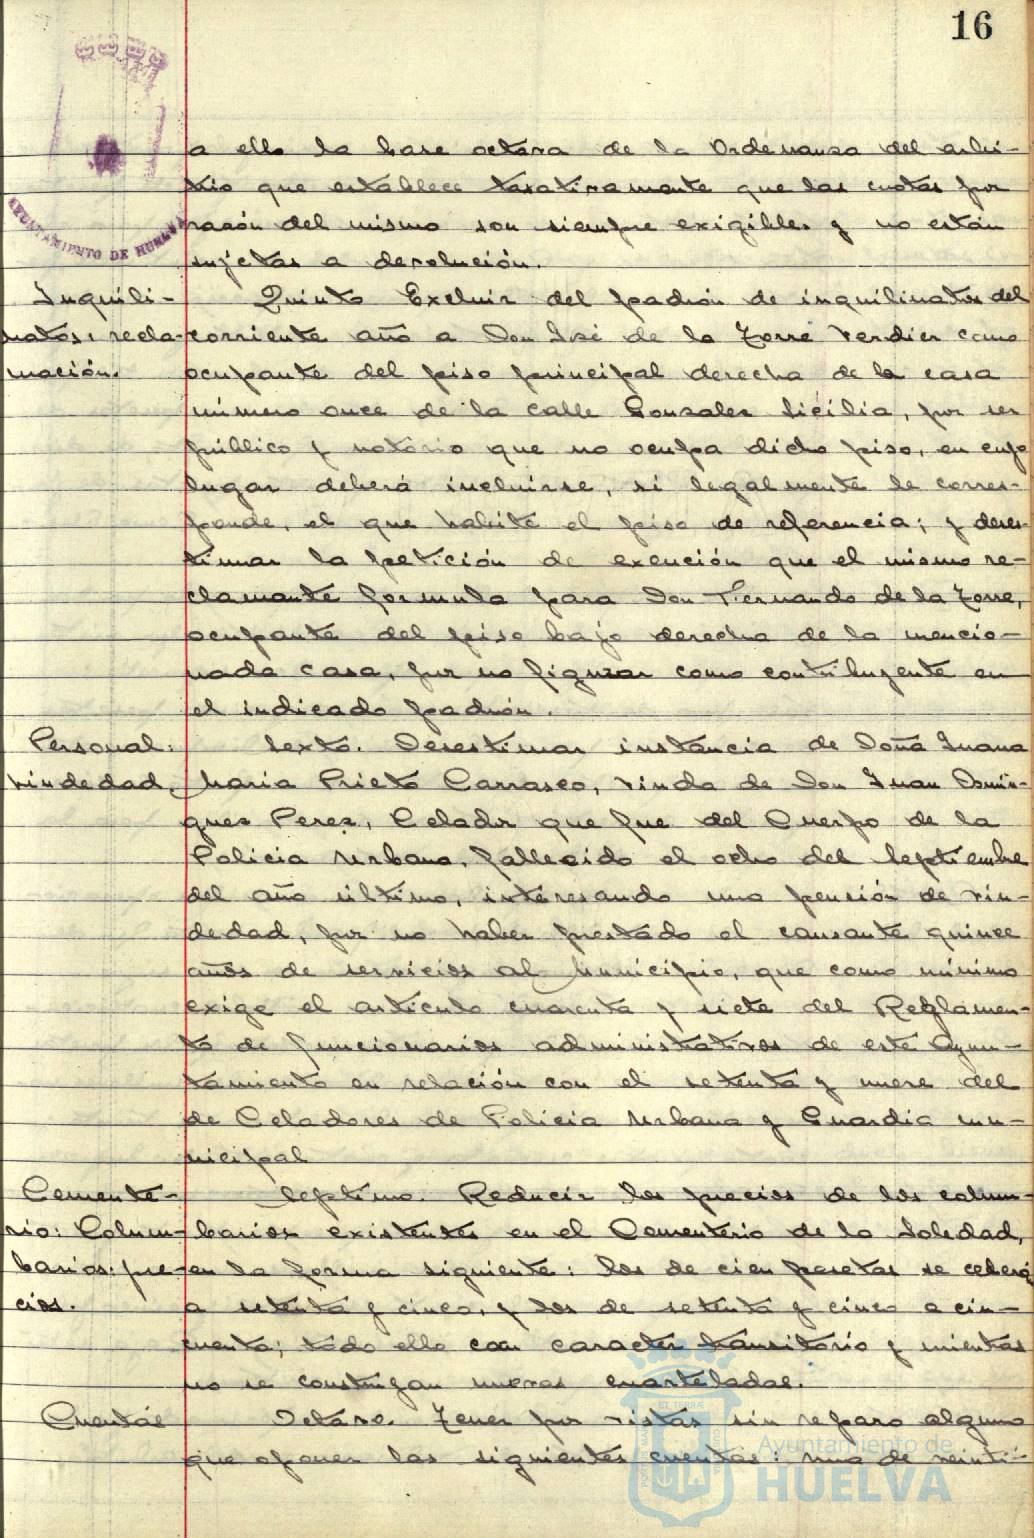 16
AYUNTAMIENTO DE HUELVA
a ello la base octava de la Ordenanza del arbi-
trio que establece taxativamente que las cuotas por
razón del mismo son siempre exigibles y no están
sujetas a devolución.
Inquili-
natos: recla-
mación.
Quinto Excluir del padrón de inquilinatos del
corriente año a Don José de la Torre Verdier como
ocupante del piso principal derecha de la casa
número once de la calle Gonzalez Sicilia, por ser
público y notorio que no ocupa dicho piso, en cuyo
lugar deberá incluirse, si legalmente le corres-
ponde, el que habite el piso de referencia; y deses-
timar la petición de exención que el mismo re-
clamante formula para Don Fernando de la Torre,
ocupante del piso bajo derecha de la mencio-
nada casa, por no figurar como contribuyente en
el indicado padrón.
Personal:
viudedad.
Sexto. Desestimar instancia de Doña Juana
Maria Prieto Carrasco, viuda de Don Juan Domin-
guez Perez, Celador que fue del Cuerpo de la
Policia Urbana, fallecido el ocho del Septiembre
del año último, interesando una pensión de viu-
dedad, por no haber prestado el causante quince
años de servicios al Municipio, que como minimo
exige el articulo cuarenta y siete del Reglamen-
to de funcionarios administrativos de este Ayun-
tamiento en relación con el setenta y nueve del
de Celadores de Policia Urbana y Guardia mu-
nicipal
Cemente-
rio: Colum-
barios: pre-
cios.
Septimo. Reducir los precios de los colum-
barios existentes en el Cementerio de la Soledad,
en la forma siguiente: los de cien pesetas se cederá
a setenta y cinco, y los de setenta y cinco a cin-
cuenta; todo ello con caracter transitorio y mientras
no se construyan nuevas cuarteladas.
Cuentas
Octavo. Tener por vistas sin reparo alguno
que oponer las siguientes cuentas: una de veinti-
Ayuntamiento de
HUELVA